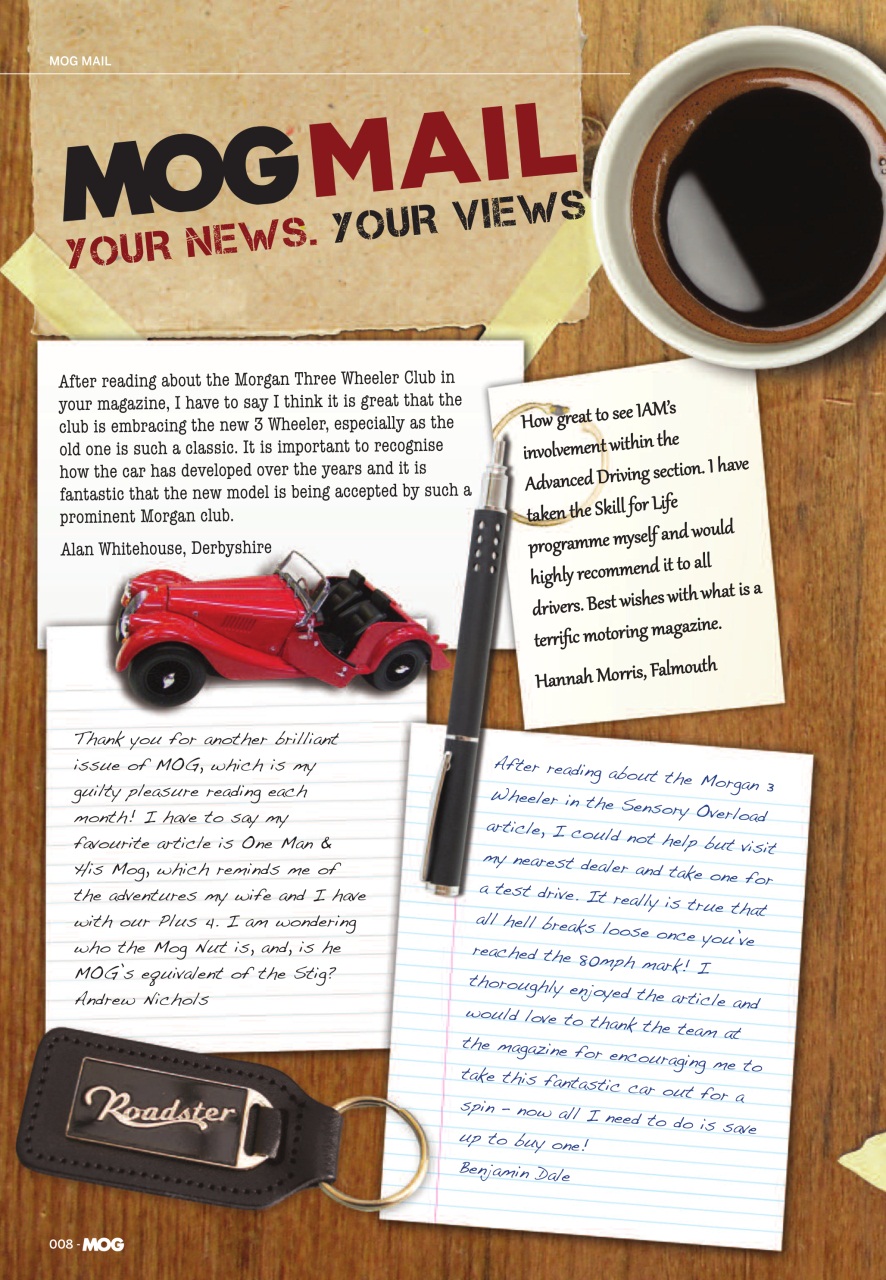 MOG MAIL
MOGMAIL
YOUR NEWS. YOUR VIEWS
After reading about the Morgan Three Wheeler Club in
your magazine, I have to say I think it is great that the
club is embracing the new 3 Wheeler, especially as the
old one is such a classic. It is important to recognise
how the car has developed over the years and it is
fantastic that the new model is being accepted by such a
prominent Morgan club.
Alan Whitehouse, Derbyshire
How great to see IAM's
involvement within the
Advanced Driving section. I have
taken the Skill for Life
programme myself and would
highly recommend it to all
drivers. Best wishes with what is a
terrific motoring magazine.
Hannah Morris, Falmouth
Thank you for another brilliant
issue of MOG, which is my
guilty pleasure reading each
month! I have to say my
favourite article is One Man &
His Mog, which reminds me of
the adventures my wife and I have
with our Plus 4. I am wondering
who the Mog Nut is, and, is he
MOG's equivalent of the Stig?
Andrew Nichols
After reading about the Morgan 3
Wheeler in the Sensory Overload
article, I could not help but visit
my nearest dealer and take one for
a test drive. It really is true that
all hell breaks loose once you've
reached the 80mph mark! I
thoroughly enjoyed the article and
would love to thank the team at
the magazine for encouraging me to
take this fantastic car out for a
spin - now all I need to do is save
up to buy one!
Benjamin Dale
Roadster
008 - MOG